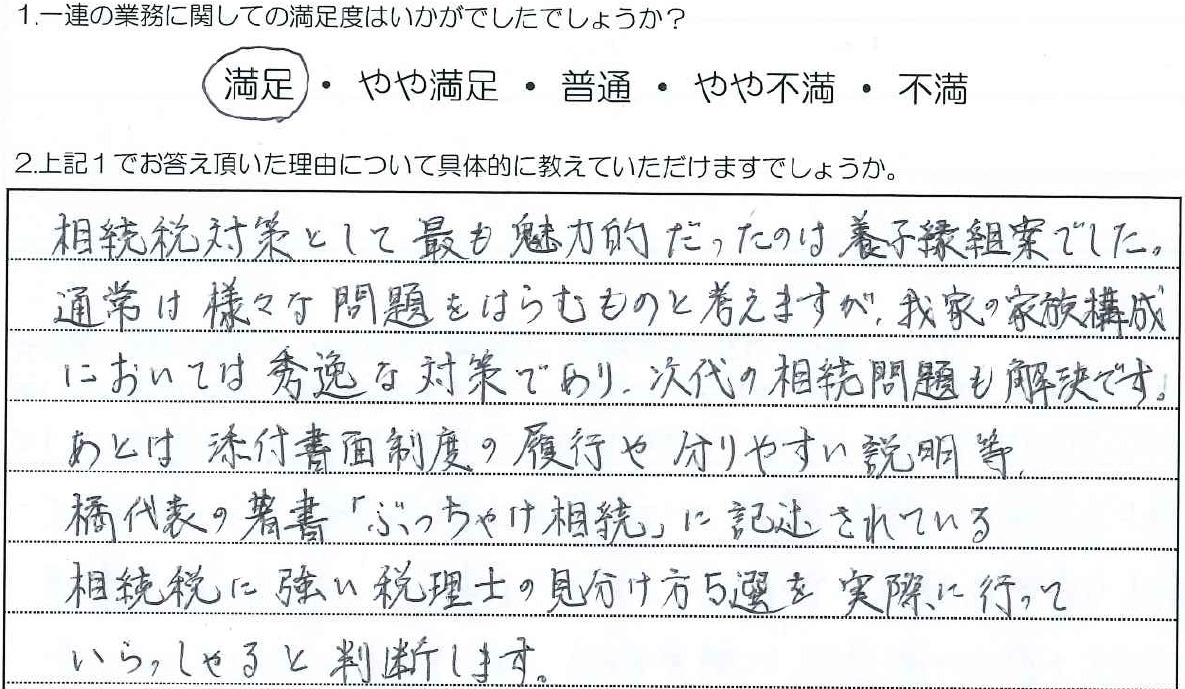 1.一連の業務に関しての満足度はいかがでしたでしょうか？
満足・やや満足・普通・やや不満・不満
2.上記１でお答え頂いた理由について具体的に教えていただけますでしょうか。
相続税対策として最も魅力的だったのは養子縁組案でした。
通常は様々な問題をはらむものと考えますが、我家の家族構成
においては秀逸な対策であり、次代の相続問題も解決です。
あとは添付書面制度の履行や分りやすい説明等、
橘代表の著書「ぶっちゃけ相続」に記述されている
相続税に強い税理士の見分け方5選を実際に行って
いらっしゃると判断します。